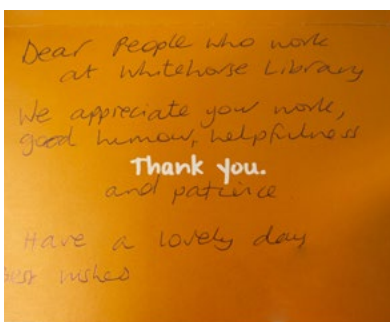 Dear People who work
at Whitehorse Library
We appreciate your work,
good humour, helpfulness
Thank you.
and patience
Have a lovely day
Best wishes